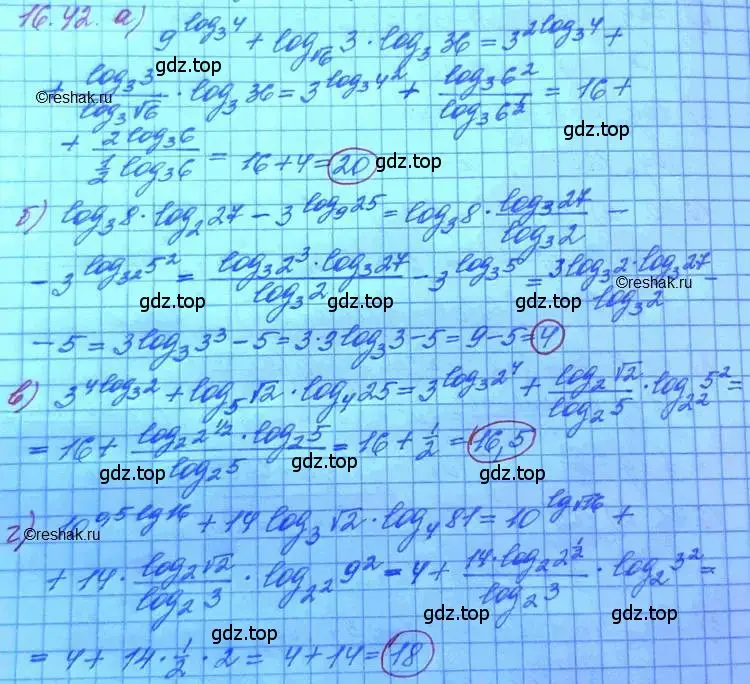 16.42. а) 9^{log_3 4} + log_{√6} 3 · log_3 36 = 3^{2log_3 4} +
+ \frac{log_3 3}{log_3 √6} · log_3 36 = 3^{log_3 4^2} + \frac{log_3 6^2}{log_3 6^{1/2}} = 16 +
©reshak.ru
gdz.top
+ \frac{2 log_3 6}{\frac{1}{2} log_3 6} = 16 + 4 = 20
gdz.top
б) log_3 8 · log_2 27 − 3^{log_9 25} = log_3 8 · \frac{log_3 27}{log_3 2} −
− 3^{log_{3^2} 5^2} = \frac{log_3 2^3 · log_3 27}{log_3 2} − 3^{log_3 5} = \frac{3log_3 2 · log_3 27}{log_3 2} −
©reshak.ru
gdz.top gdz.top
− 5 = 3log_3 3^3 − 5 = 3·3log_3 3 − 5 = 9 − 5 = 4
в) 3^{4log_3 2} + log_5 √2 · log_4 25 = 3^{log_3 2^4} + \frac{log_2 √2}{log_2 5} · log_{2^2} 5^2 =
= 16 + \frac{log_2 2^{1/2} · log_2 5}{log_2 5} = 16 + \frac{1}{2} = 16,5
gdz.top gdz.top gdz.top
г) 10^{0,5 lg 16} + 14 log_3 √2 · log_4 81 = 10^{lg √16} +
©reshak.ru
+ 14 · \frac{log_2 √2}{log_2 3} · log_{2^2} 9^2 = 4 + \frac{14 · log_2 2^{1/2}}{log_2 3} · log_2 3^2 =
gdz.top gdz.top gdz.top
= 4 + 14 · \frac{1}{2} · 2 = 4 + 14 = 18